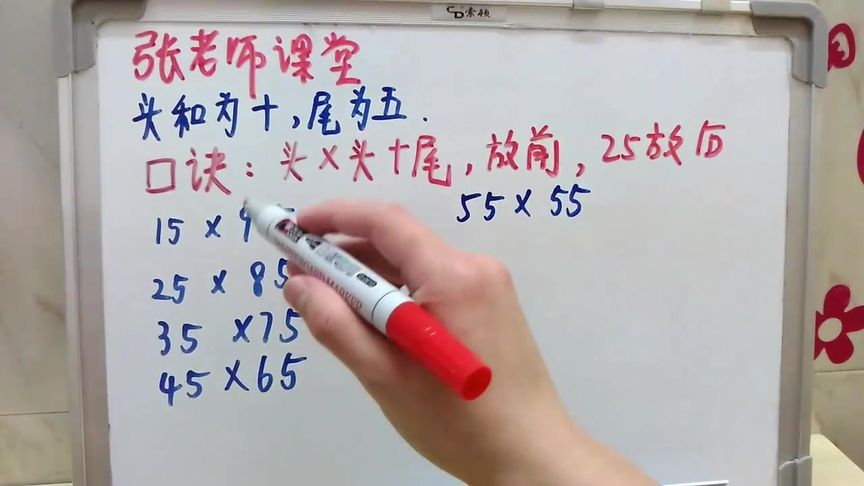 索顿
张老师课堂
头和为十,尾为五.
口诀:头×头+尾,放前,25放后
55×55
15×9
25×85
35×75
45×65